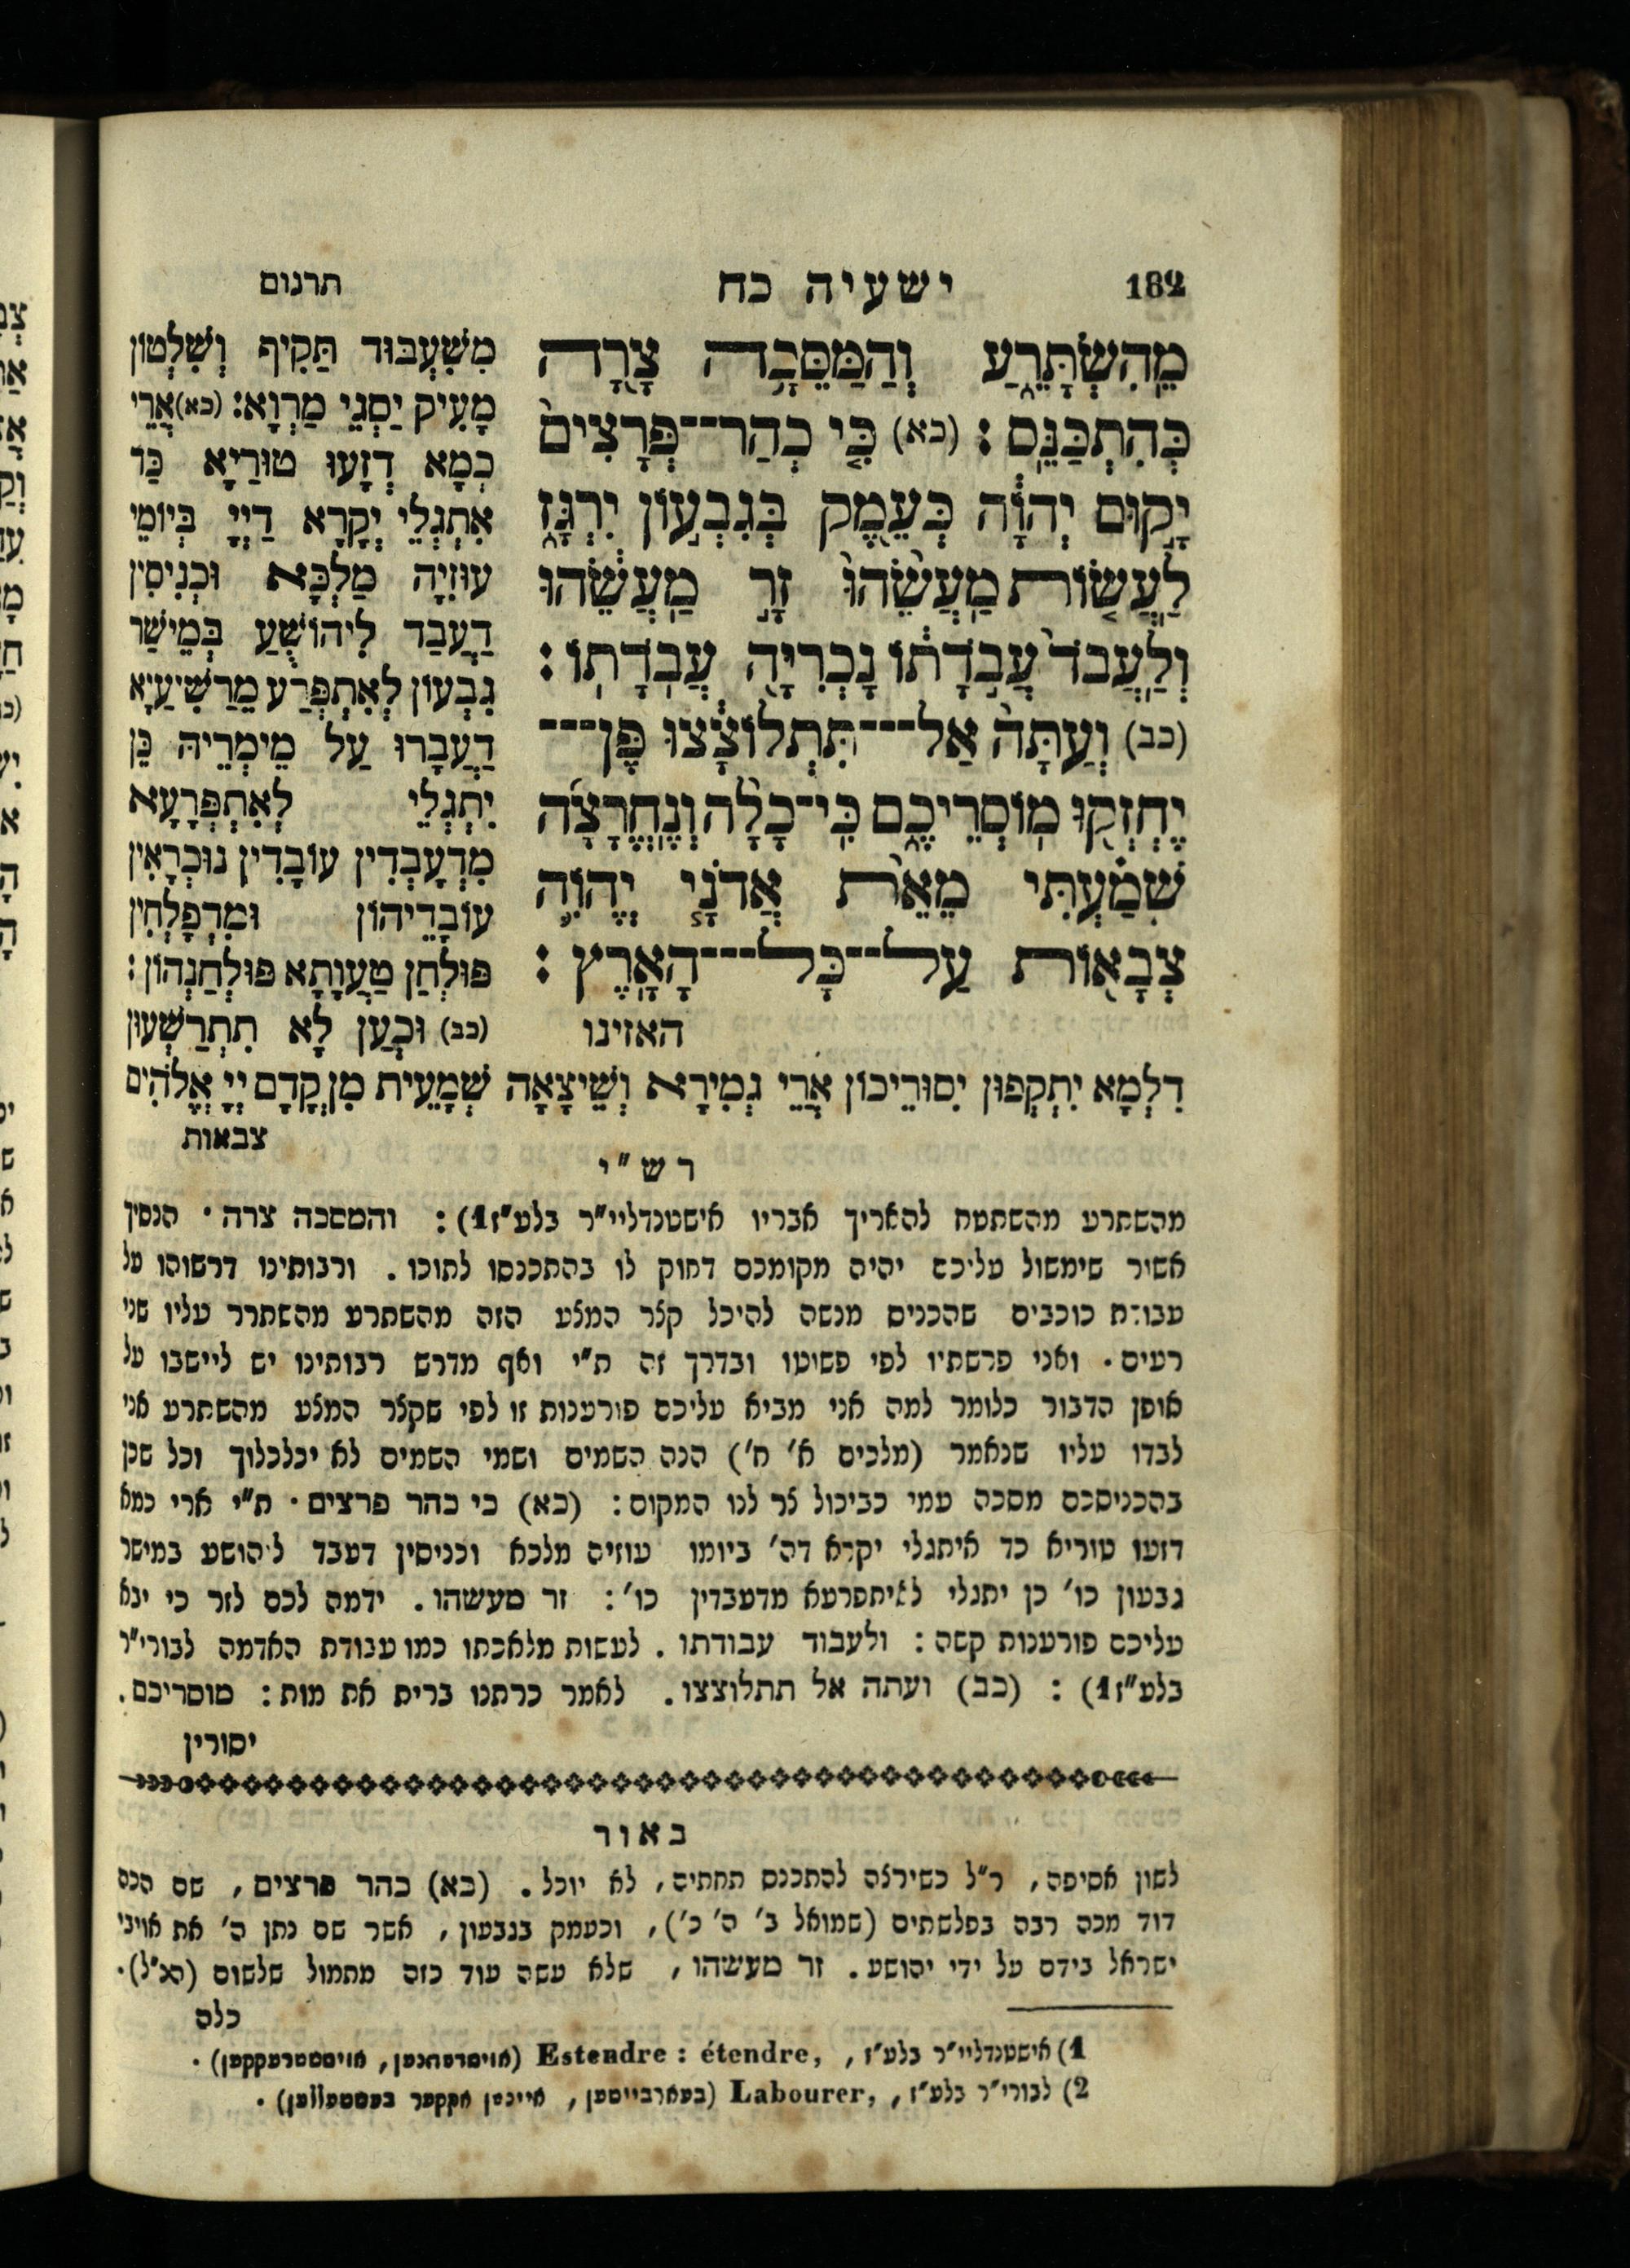 182 ישעיה כח תרגום
מֵהִשְׂתָּרֵ֑עַ וְהַמַּסֵּכָ֥ה צָרָ֖ה
כְּהִתְכַּנֵּֽס׃ (כא) כִּ֤י כְהַר־פְּרָצִים֙
יָק֣וּם יְהוָ֔ה כְּעֵ֖מֶק בְּגִבְע֣וֹן יִרְגָּ֑ז
לַעֲשׂ֤וֹת מַעֲשֵׂ֙הוּ֙ זָ֣ר מַעֲשֵׂ֔הוּ
וְלַֽעֲבֹד֙ עֲבֹ֣דָת֔וֹ נָכְרִיָּ֖ה עֲבֹדָתֽוֹ׃
(כב) וְעַתָּה֙ אַל־תִּתְלוֹצָ֔צוּ פֶּֽן־
יֶחְזְק֖וּ מֽוֹסְרֵיכֶ֑ם כִּֽי־כָלָ֨ה וְנֶחֱרָצָ֜ה
שָׁמַ֗עְתִּי מֵאֵ֨ת אֲדֹנָ֧י יֱהוִ֛ה
צְבָא֖וֹת עַל־כָּל־הָאָֽרֶץ׃
האזינו
מִשִׁעְבּוּד תַּקִיף וְשִׁלְטוֹן
מָעִיק יַסְגֵי מַרְוָא׃ (כא) אֲרֵי
כְמָא דְזָעוּ טוּרַיָא כַּד
אִתְגְלֵי יְקָרָא דַיְיָ בְּיוֹמֵי
עוּזִיָה מַלְכָּא וּכְנִיסִין
דַעֲבַד לִיהוֹשֻׁעַ בְּמֵישַׁר
גִבְעוֹן לְאִתְפְּרַע מֵרַשִׁיעַיָא
דַעֲבָרוּ עַל מֵימְרֵיהּ כֵּן
יִתְגְלֵי לְאִתְפְּרָעָא
מִדְעָבְדִין עוֹבָדִין נוּכְרָאִין
עוֹבָדֵיהוֹן וּמִדְפָלְחִין
פּוּלְחַן טַעֲוָתָא פּוּלְחַנְהוֹן׃
(כב) וּכְעַן לָא תִתְרַשְׁעוּן
דִלְמָא יִתְקְפוּן יִסוּרֵיכוֹן אֲרֵי גְמִירָא וְשֵׁיצָאָה שְׁמָעֵית מִן קֳדָם יְיָ אֱלֹהִים
צבאות
רש"י
מהשתרע מהשתטח להאריך אבריו אישטנדליי"ר בלע"ז 1): והמסכה צרה · הנסיך
אשור שימשול עליכם יהיה מקומכם דחוק לו בהתכנסו לתוכו. ורבותינו דרשוהו על
עבו״ת כוכבים שהכניס מנשה להיכל קצר המצע הזה מהשתרע מהשתרר עליו שני
רעים. ואני פרשתיו לפי פשוטו ובדרך זה ת"י ואף מדרש רבותינו יש ליישבו על
אופן הדבור כלומר למה אני מביא עליכם פורענות זו לפי שקצר המצע מהשתרע אני
לבדו עליו שנאמר (מלכים א' ח') הנה השמים ושמי השמים לא יכלכלוך וכל שכן
בהכניסכם מסכה עמי כביכול צר לנו המקום: (כא) כי כהר פרצים · ת"י ארי כמא
דזעו טוריא כד איתגלי יקרא דה' ביומו עוזיה מלכא וכניסין דעבד ליהושע במישר
גבעון כו' כן יתגלי לאיתפרעא מדעבדין כו': זר מעשהו. ידמה לכם לזר כי יבא
עליכם פורענות קשה: ולעבוד עבודתו. לעשות מלאכתו כמו עבודת האדמה לבורי"ר
בלע"ז 1): (כב) ועתה אל תתלוצצו. לאמר כרתנו ברית את מות: מוסריכם.
יסורין
באור
לשון אסיפה, ר"ל כשירצה להתכנס תחתיה, לא יוכל. (כא) כהר פרצים, שם הכם
דוד מכה רבה בפלשתים (שמואל ב' ה' כ'), וכעמק בגבעון, אשר שם נתן ה' את אויבי
ישראל בידם על ידי יהושע. זר מעשהו, שלא עשה עוד כזה מתמול שלשום (הנ"ל).
כלם
1) אישטנדליי"ר בלע"ז, Estendre : étendre, (אויסדעהנען, אויסשטרעקקען).
2) לבורי"ר בלע"ז, Labourer, (בעארבייטען, איינען אקקער בעשטעללען).